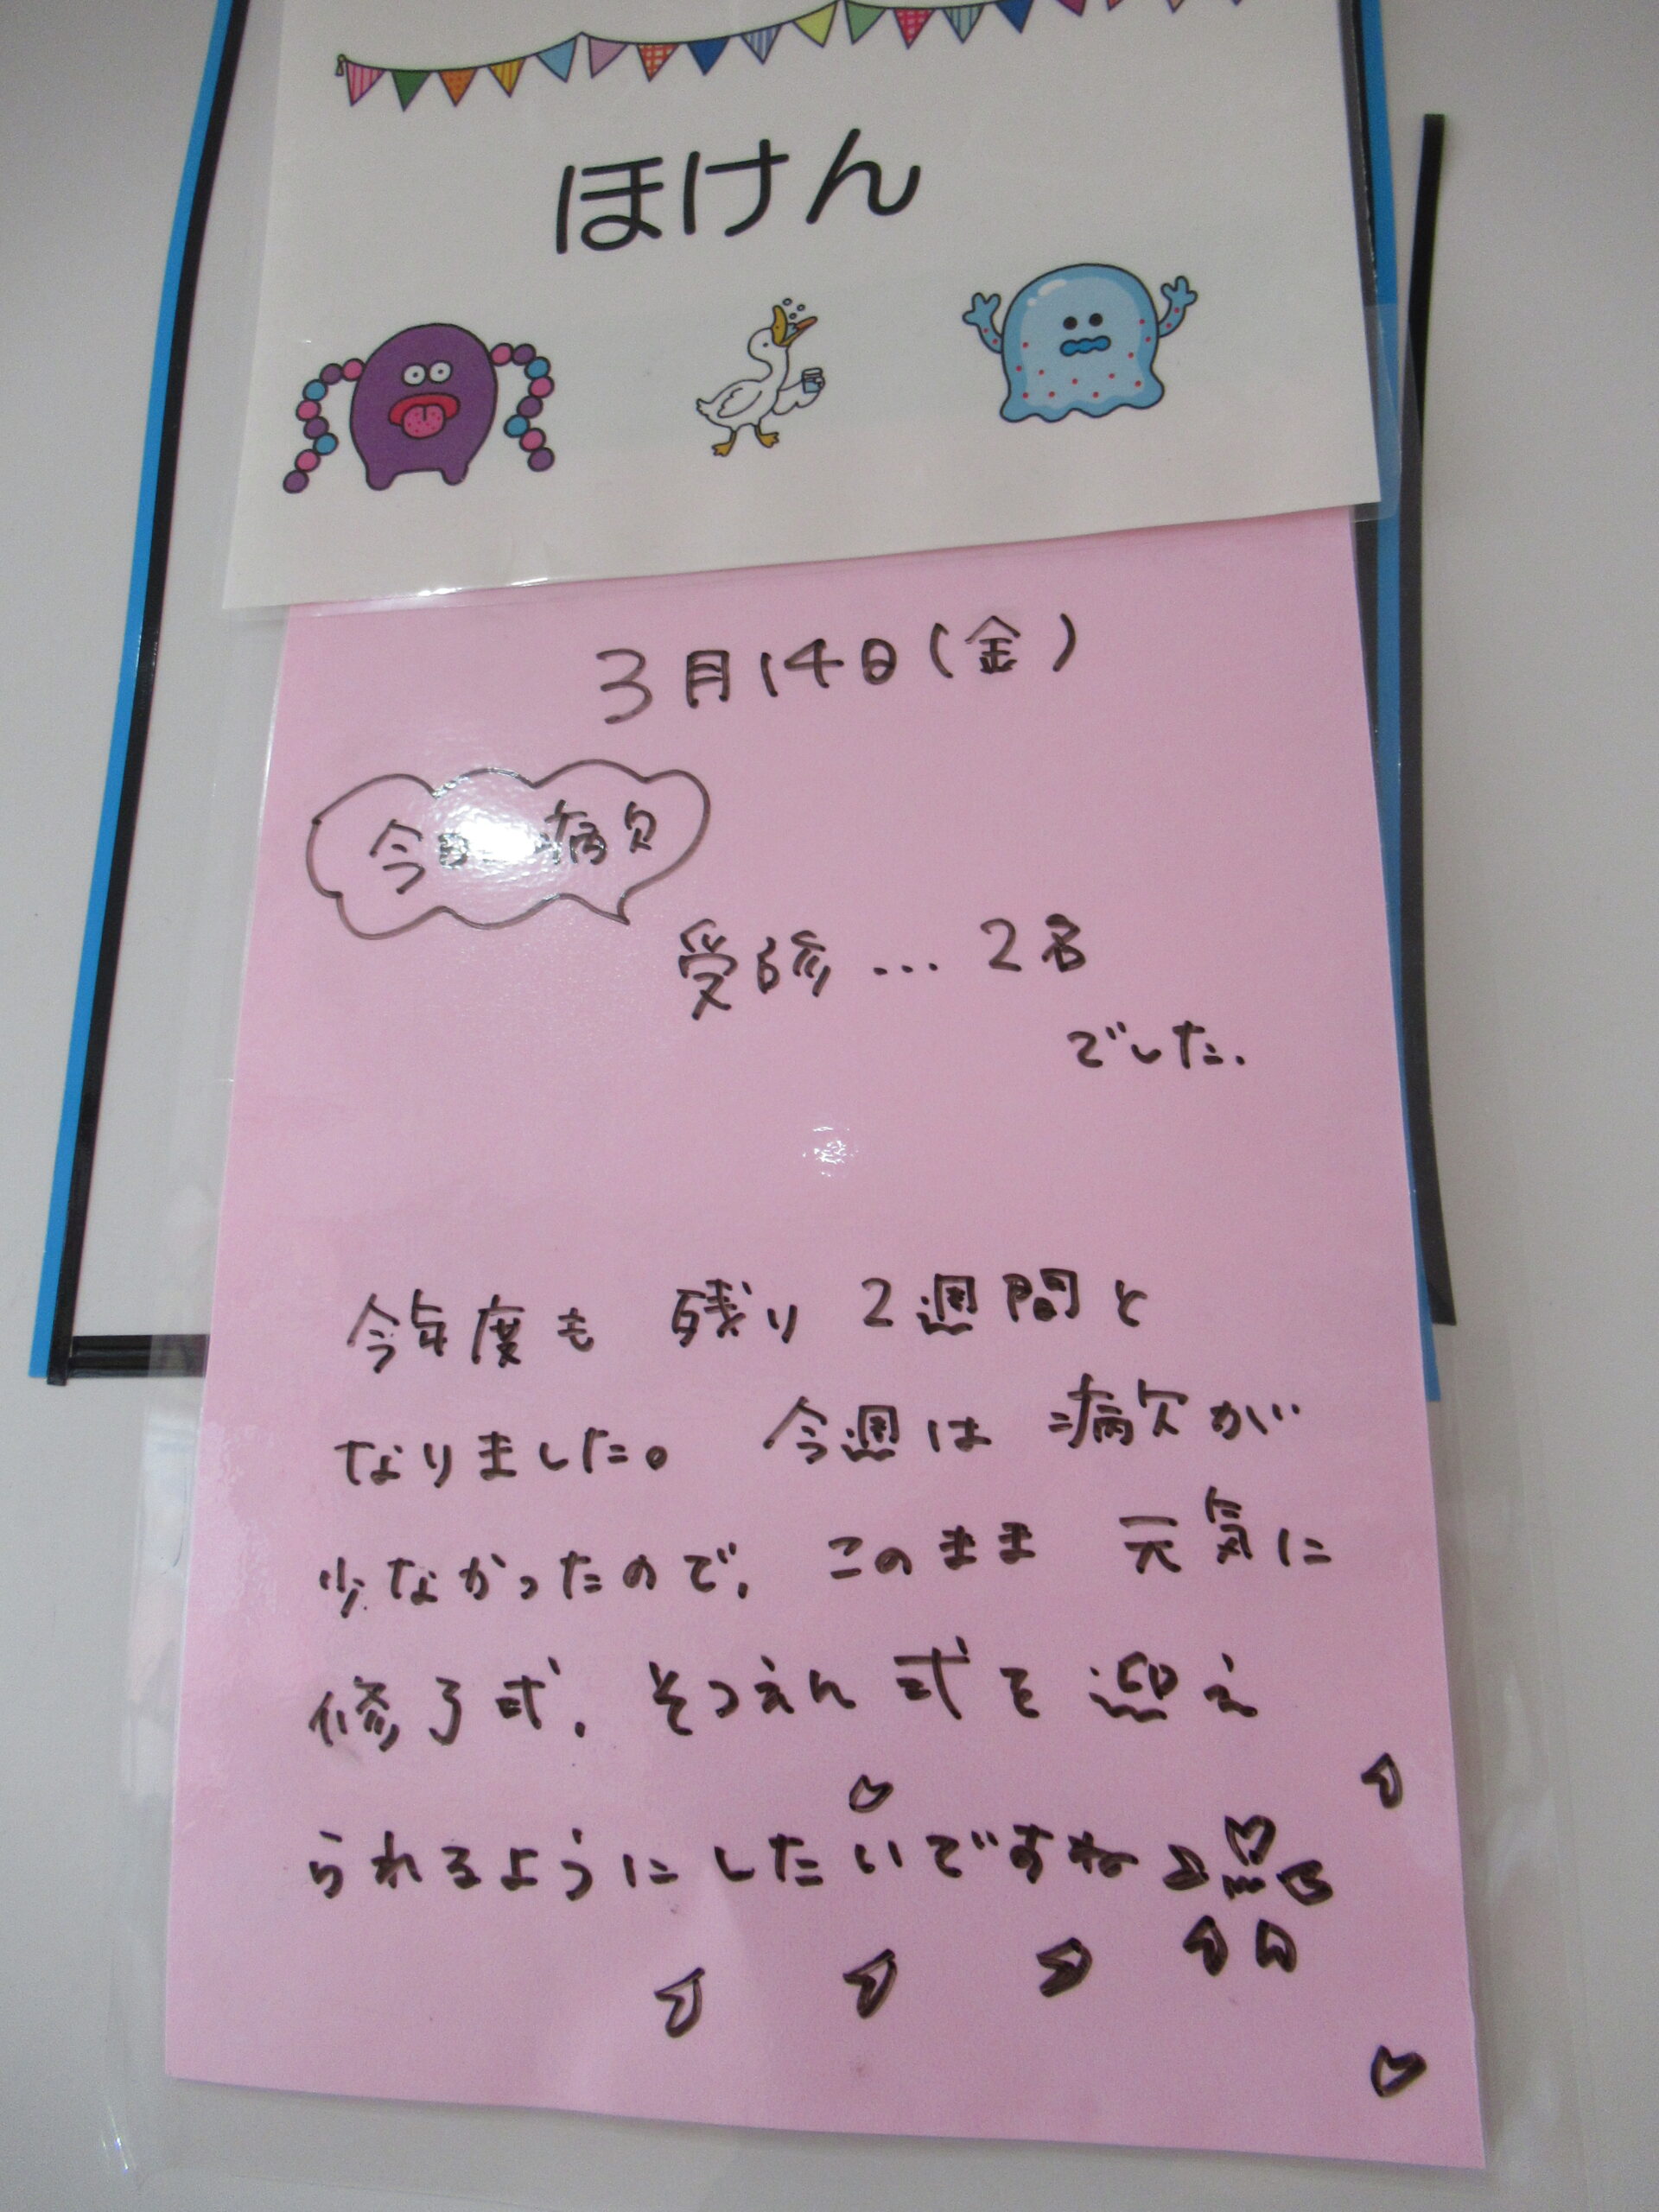 ほけん
3月14日(金)
今日の病欠
受診…2名
でした.
今年度も 残り 2週間と
なりました。 今週は 病欠が
少なかったので、このまま 元気に
修了式、そつえん式を迎え
られるようにしたいですね